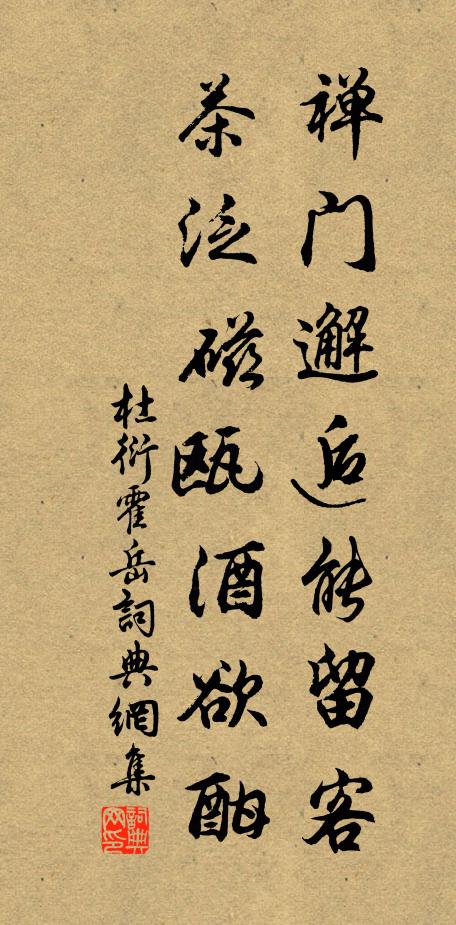 禅门邂逅能留客
茶泛磁瓯酒欲酣
杜衍霍岳詞典網集
詞典网印